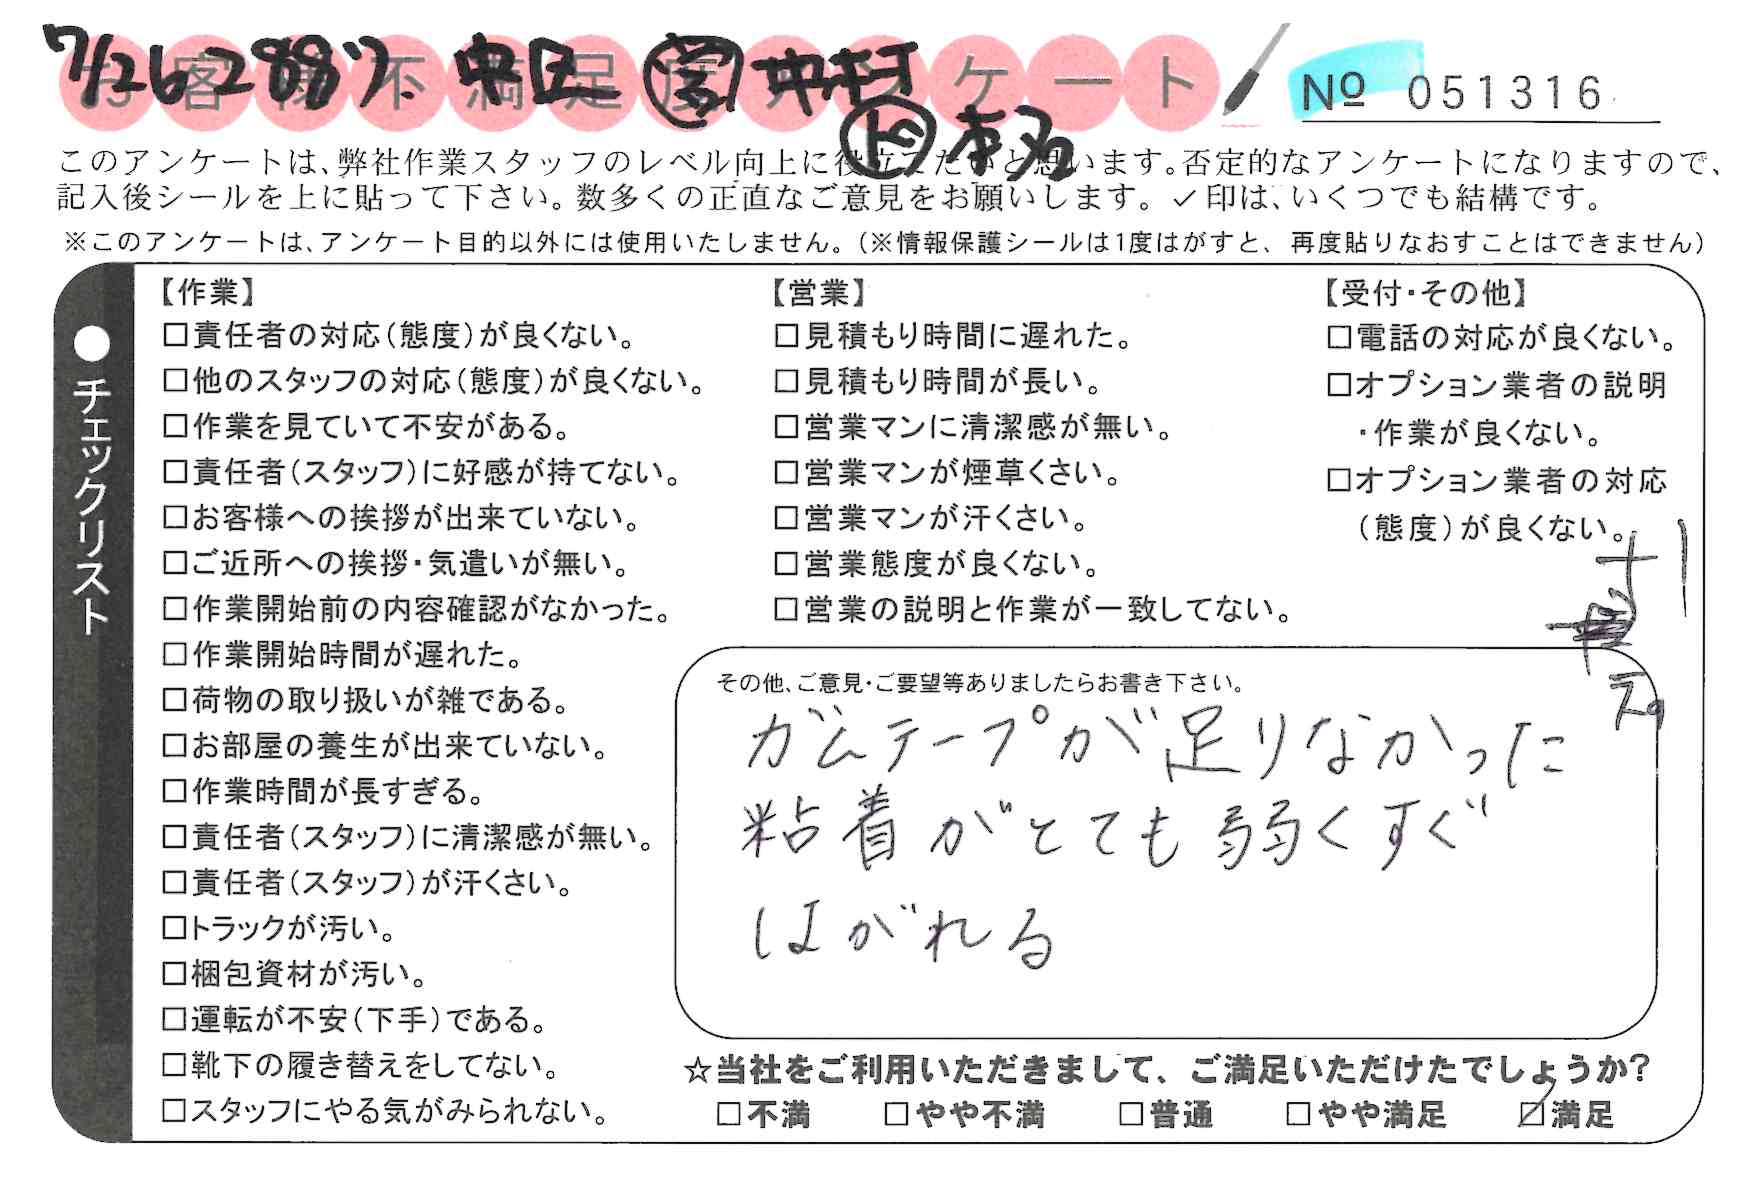 お客様不満足度アンケート
7/26 2887. 中区 営 中村
ド 本名
№ 051316
このアンケートは、弊社作業スタッフのレベル向上に役立てたいと思います。否定的なアンケートになりますので、
記入後シールを上に貼って下さい。数多くの正直なご意見をお願いします。✓印は、いくつでも結構です。
※このアンケートは、アンケート目的以外には使用いたしません。(※情報保護シールは1度はがすと、再度貼りなおすことはできません)
●チェックリスト
【作業】
□責任者の対応(態度)が良くない。
□他のスタッフの対応(態度)が良くない。
□作業を見ていて不安がある。
□責任者(スタッフ)に好感が持てない。
□お客様への挨拶が出来ていない。
□ご近所への挨拶・気遣いが無い。
□作業開始前の内容確認がなかった。
□作業開始時間が遅れた。
□荷物の取り扱いが雑である。
□お部屋の養生が出来ていない。
□作業時間が長すぎる。
□責任者(スタッフ)に清潔感が無い。
□責任者(スタッフ)が汗くさい。
□トラックが汚い。
□梱包資材が汚い。
□運転が不安(下手)である。
□靴下の履き替えをしてない。
□スタッフにやる気がみられない。
【営業】
□見積もり時間に遅れた。
□見積もり時間が長い。
□営業マンに清潔感が無い。
□営業マンが煙草くさい。
□営業マンが汗くさい。
□営業態度が良くない。
□営業の説明と作業が一致してない。
【受付・その他】
□電話の対応が良くない。
□オプション業者の説明
・作業が良くない。
□オプション業者の対応
(態度)が良くない。
その他、ご意見・ご要望等ありましたらお書き下さい。
ガムテープが足りなかった
粘着がとても弱くすぐ
はがれる
☆当社をご利用いただきまして、ご満足いただけたでしょうか?
□不満 □やや不満 □普通 □やや満足 ☑満足